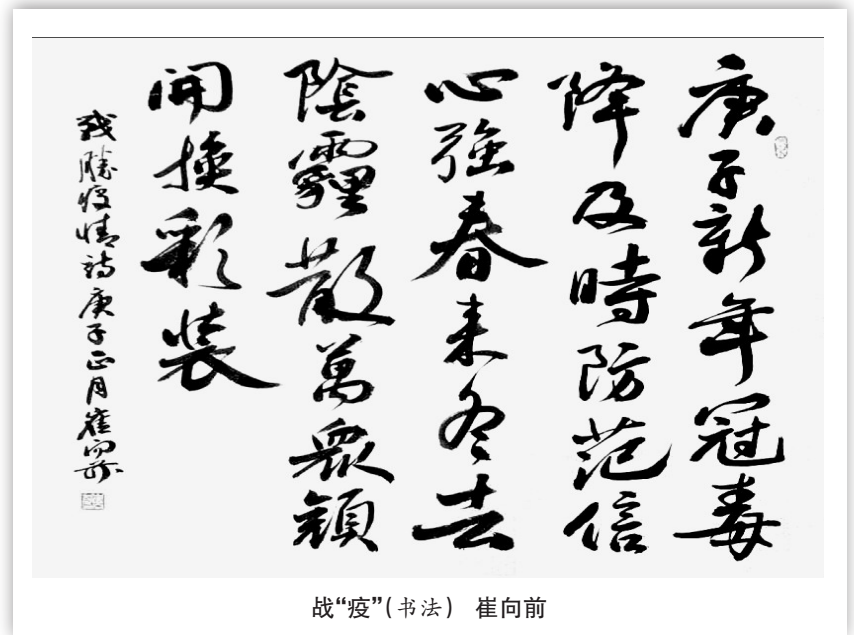 庚子新年冠毒
降及時防范信
心强春来冬去
陰霾散萬衆顔
開換彩装
战勝疫情詩庚子正月崔向前
战“疫”(书法) 崔向前